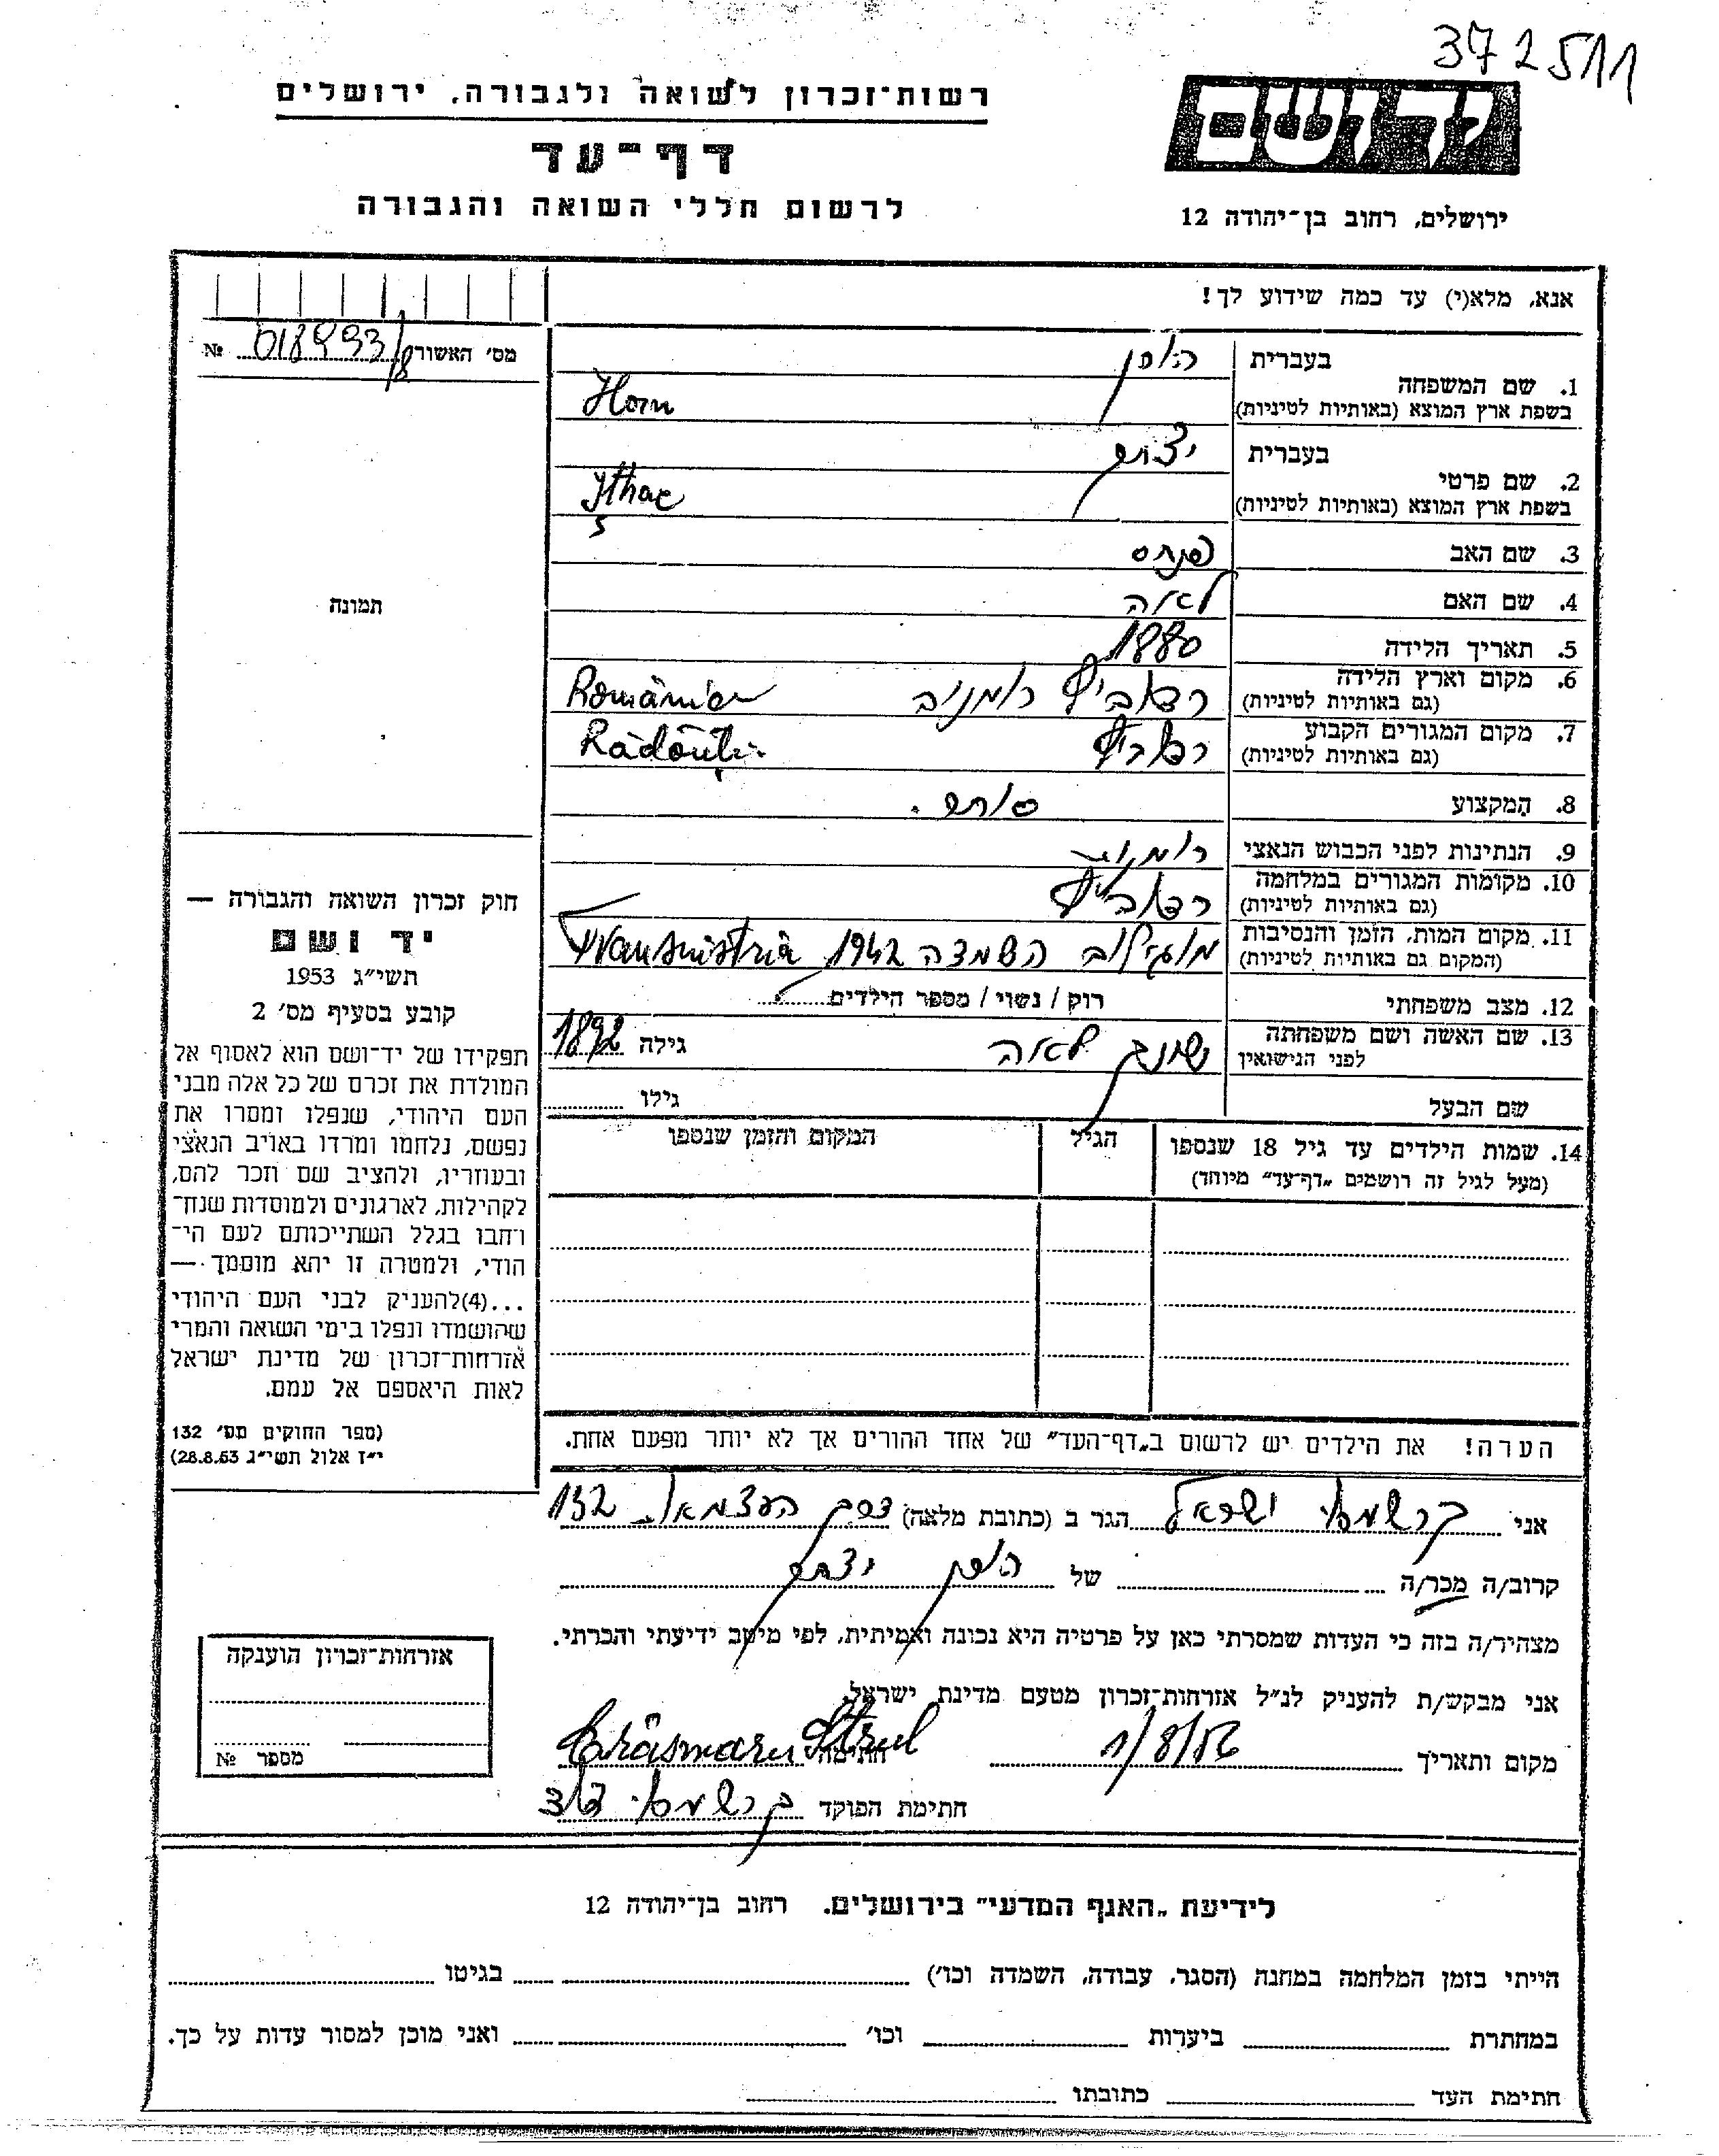 372511
רשות־זכרון לשואה ולגבורה, ירושלים
יד ושם
דף־עד
לרשום חללי השואה והגבורה
ירושלים, רחוב בן־יהודה 12
אנא, מלא(י) עד כמה שידוע לך!
מס׳ האשור № 018993/8
תמונה
1. שם המשפחה בעברית הורן
בשפת ארץ המוצא (באותיות לטיניות) Horn
2. שם פרטי בעברית יצחק
בשפת ארץ המוצא (באותיות לטיניות)
3. שם האב פנחס
4. שם האם לאה
5. תאריך הלידה 1880
6. מקום וארץ הלידה (גם באותיות לטיניות) רדאוץ רומניה România
7. מקום המגורים הקבוע (גם באותיות לטיניות) רדאוץ Rădăuți
8. המקצוע סוחר.
9. הנתינות לפני הכבוש הנאצי רומנית
10. מקומות המגורים במלחמה (גם באותיות לטיניות) רדאוץ
11. מקום המות, הזמן והנסיבות (המקום גם באותיות לטיניות) מוגילוב השמדה 1942 Transnistria
12. מצב משפחתי רוק / נשוי / מספר הילדים
13. שם האשה ושם משפחתה לפני הנישואין לאה גילה 1892
שם הבעל גילו
14. שמות הילדים עד גיל 18 שנספו הגיל המקום והזמן שנספו
(מעל לגיל זה רושמים „דף־עד״ מיוחד)
חוק זכרון השואה והגבורה —
יד ושם
תשי״ג 1953
קובע בסעיף מס׳ 2
תפקידו של יד־ושם הוא לאסוף אל
המולדת את זכרם של כל אלה מבני
העם היהודי, שנפלו ומסרו את
נפשם, נלחמו ומרדו באויב הנאצי
ובעוזריו, ולהציב שם וזכר להם,
לקהילות, לארגונים ולמוסדות שנח־
רחבו בגלל השתייכותם לעם הי־
הודי, ולמטרה זו יהא מוסמך —
...(4)להעניק לבני העם היהודי
שהושמדו ונפלו בימי השואה והמרי
אזרחות־זכרון של מדינת ישראל
לאות היאספם אל עמם.
(ספר החוקים מס׳ 132
י״ז אלול תשי״ג 28.8.53)
הערה! את הילדים יש לרשום ב„דף־העד״ של אחד ההורים אך לא יותר מפעם אחת.
אני קרשמרו ישראל הגר ב (כתובת מלאה) העצמאות 132
קרוב/ה מכר/ה של הורן יצחק
מצהיר/ה בזה כי העדות שמסרתי כאן על פרטיה היא נכונה ואמיתית, לפי מיטב ידיעתי והכרתי.
אני מבקש/ת להעניק לנ״ל אזרחות־זכרון מטעם מדינת ישראל.
מקום ותאריך 1/8/56 חתימה Crâșmaru Strul
חתימת הפוקד
אזרחות־זכרון הוענקה
מספר №
לידיעת „האגף המדעי״ בירושלים. רחוב בן־יהודה 12
הייתי בזמן המלחמה במחנה (הסגר, עבודה, השמדה וכו׳) בגיטו
במחתרת ביערות וכו׳ ואני מוכן למסור עדות על כך.
חתימת העד כתובתו